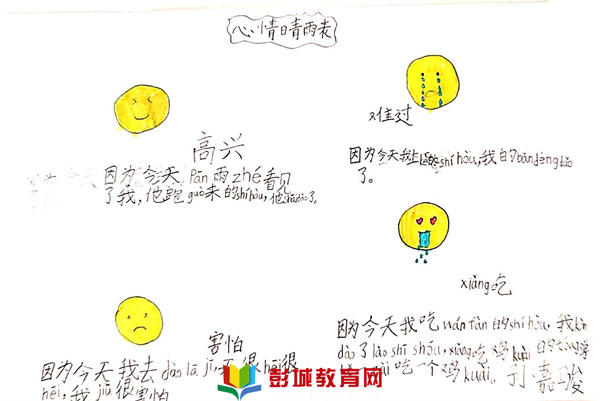 心情晴雨表
高兴
因为今天 Pān 雨 zhé 看见
了我，他跑 guò 来的 shí hòu，他
了。
难过
因为今天我上 shí hòu，我的 bǎn dèng dǎo
了。
xiǎng 吃
因为今天我吃 wán fàn 的 shí hòu，我 kàn
dào 了 lǎo shī shǒu，xiǎng 吃鸡 kuài 的
吃一个鸡 kuài。
害怕
因为今天我去 dào lā jī，天很 hēi 很
hēi，我 jiù 很害怕
彭城教育网